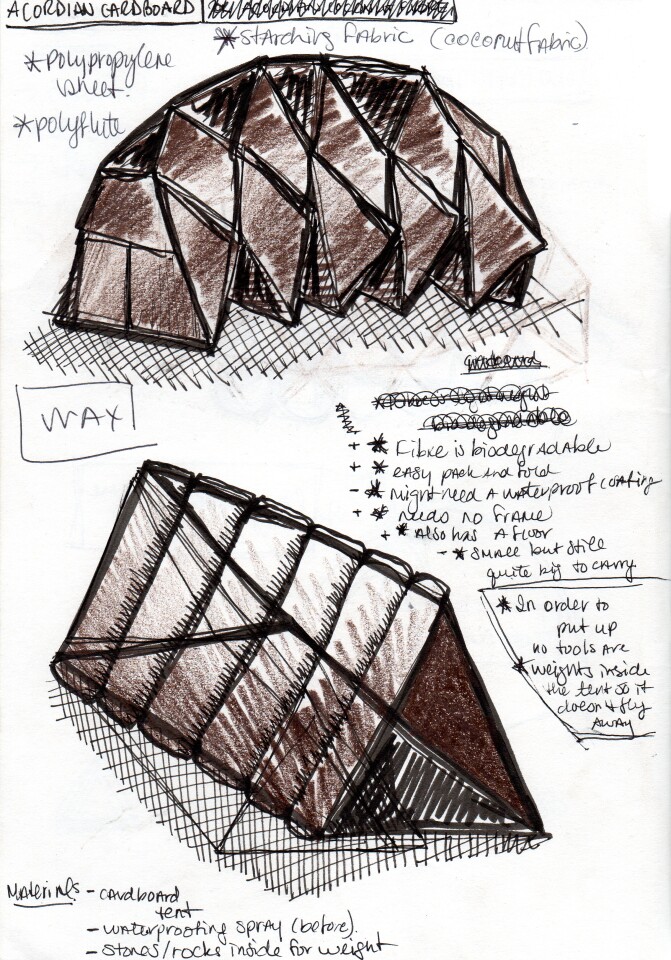 ACORDIAN CARDBOARD
* Starching Fabric (coconut fabric)
* polypropylene
sheet.
* polyflute
WAX
+ * Fibre is biodegradable
+ * easy pack and fold
- * might need a waterproof coating
+ * needs no frame
+ * Also has a floor
- * small but still
quite big to carry
* In order to
put up
no tools are
* weights inside
the tent so it
doesn't fly
away
Materials - cardboard
tent
- waterproofing spray (before).
- stones/rocks inside for weight